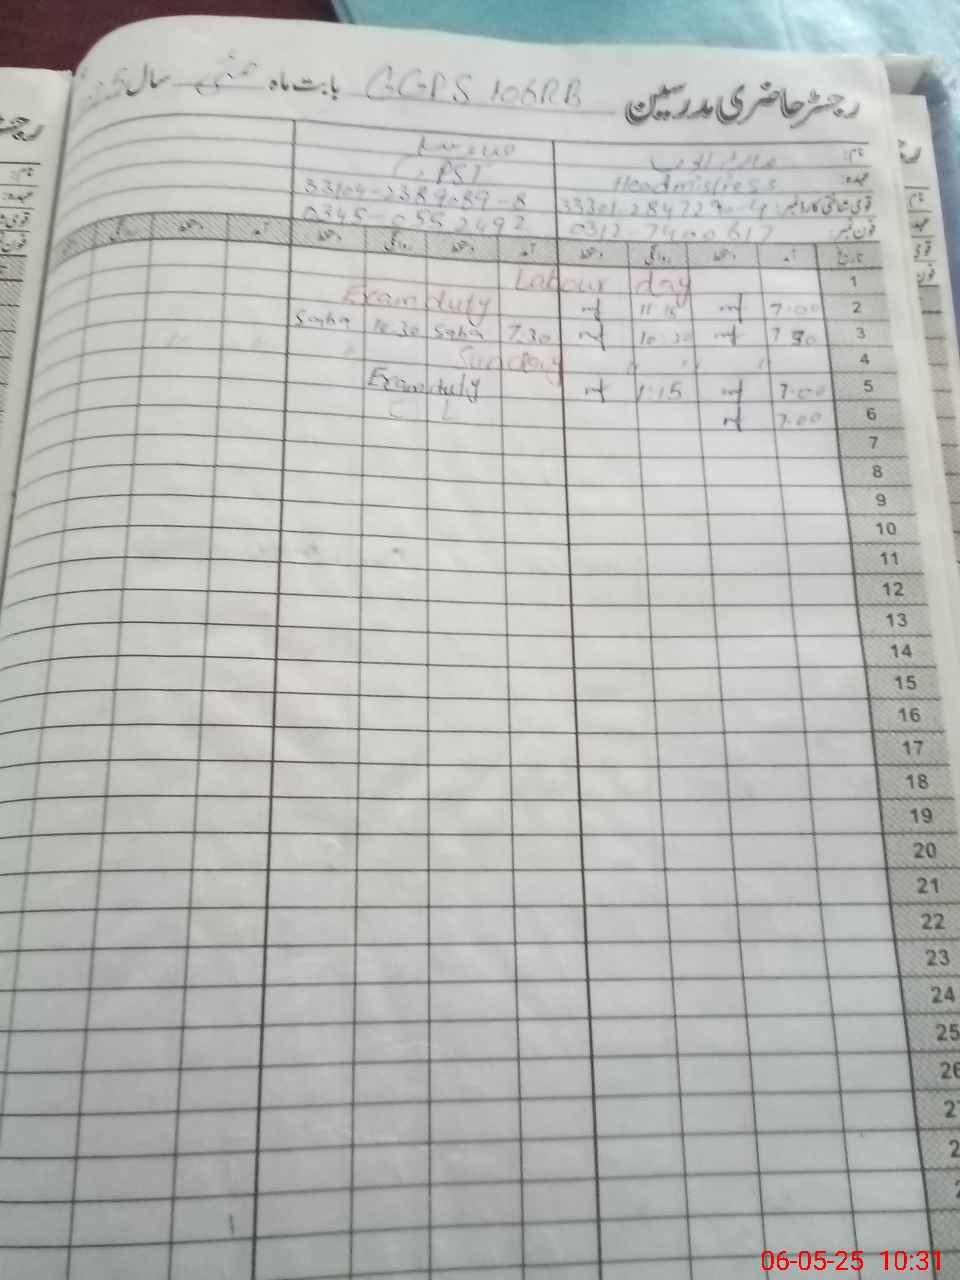 رجسٹر حاضری مدرسین GGPS 106RB بابت ماہ مئی سال
نام:
عہدہ: Headmistress PST
قومی شناختی کارڈ نمبر: 33104-2389089-8
فون نمبر: 0312-7400617 0345-0552492
تاریخ آمد دستخط روانگی دستخط آمد دستخط روانگی دستخط آمد دستخط روانگی دستخط
1 Labour day
2 7:00 11:15 Exam duty
3 7:30 10:30 7:30 Saba 10:30 Saba
4 Sunday
5 7:00 1:15 Exam duty
6 7:00 C L
7
8
9
10
11
12
13
14
15
16
17
18
19
20
21
22
23
24
25
26
06-05-25 10:31